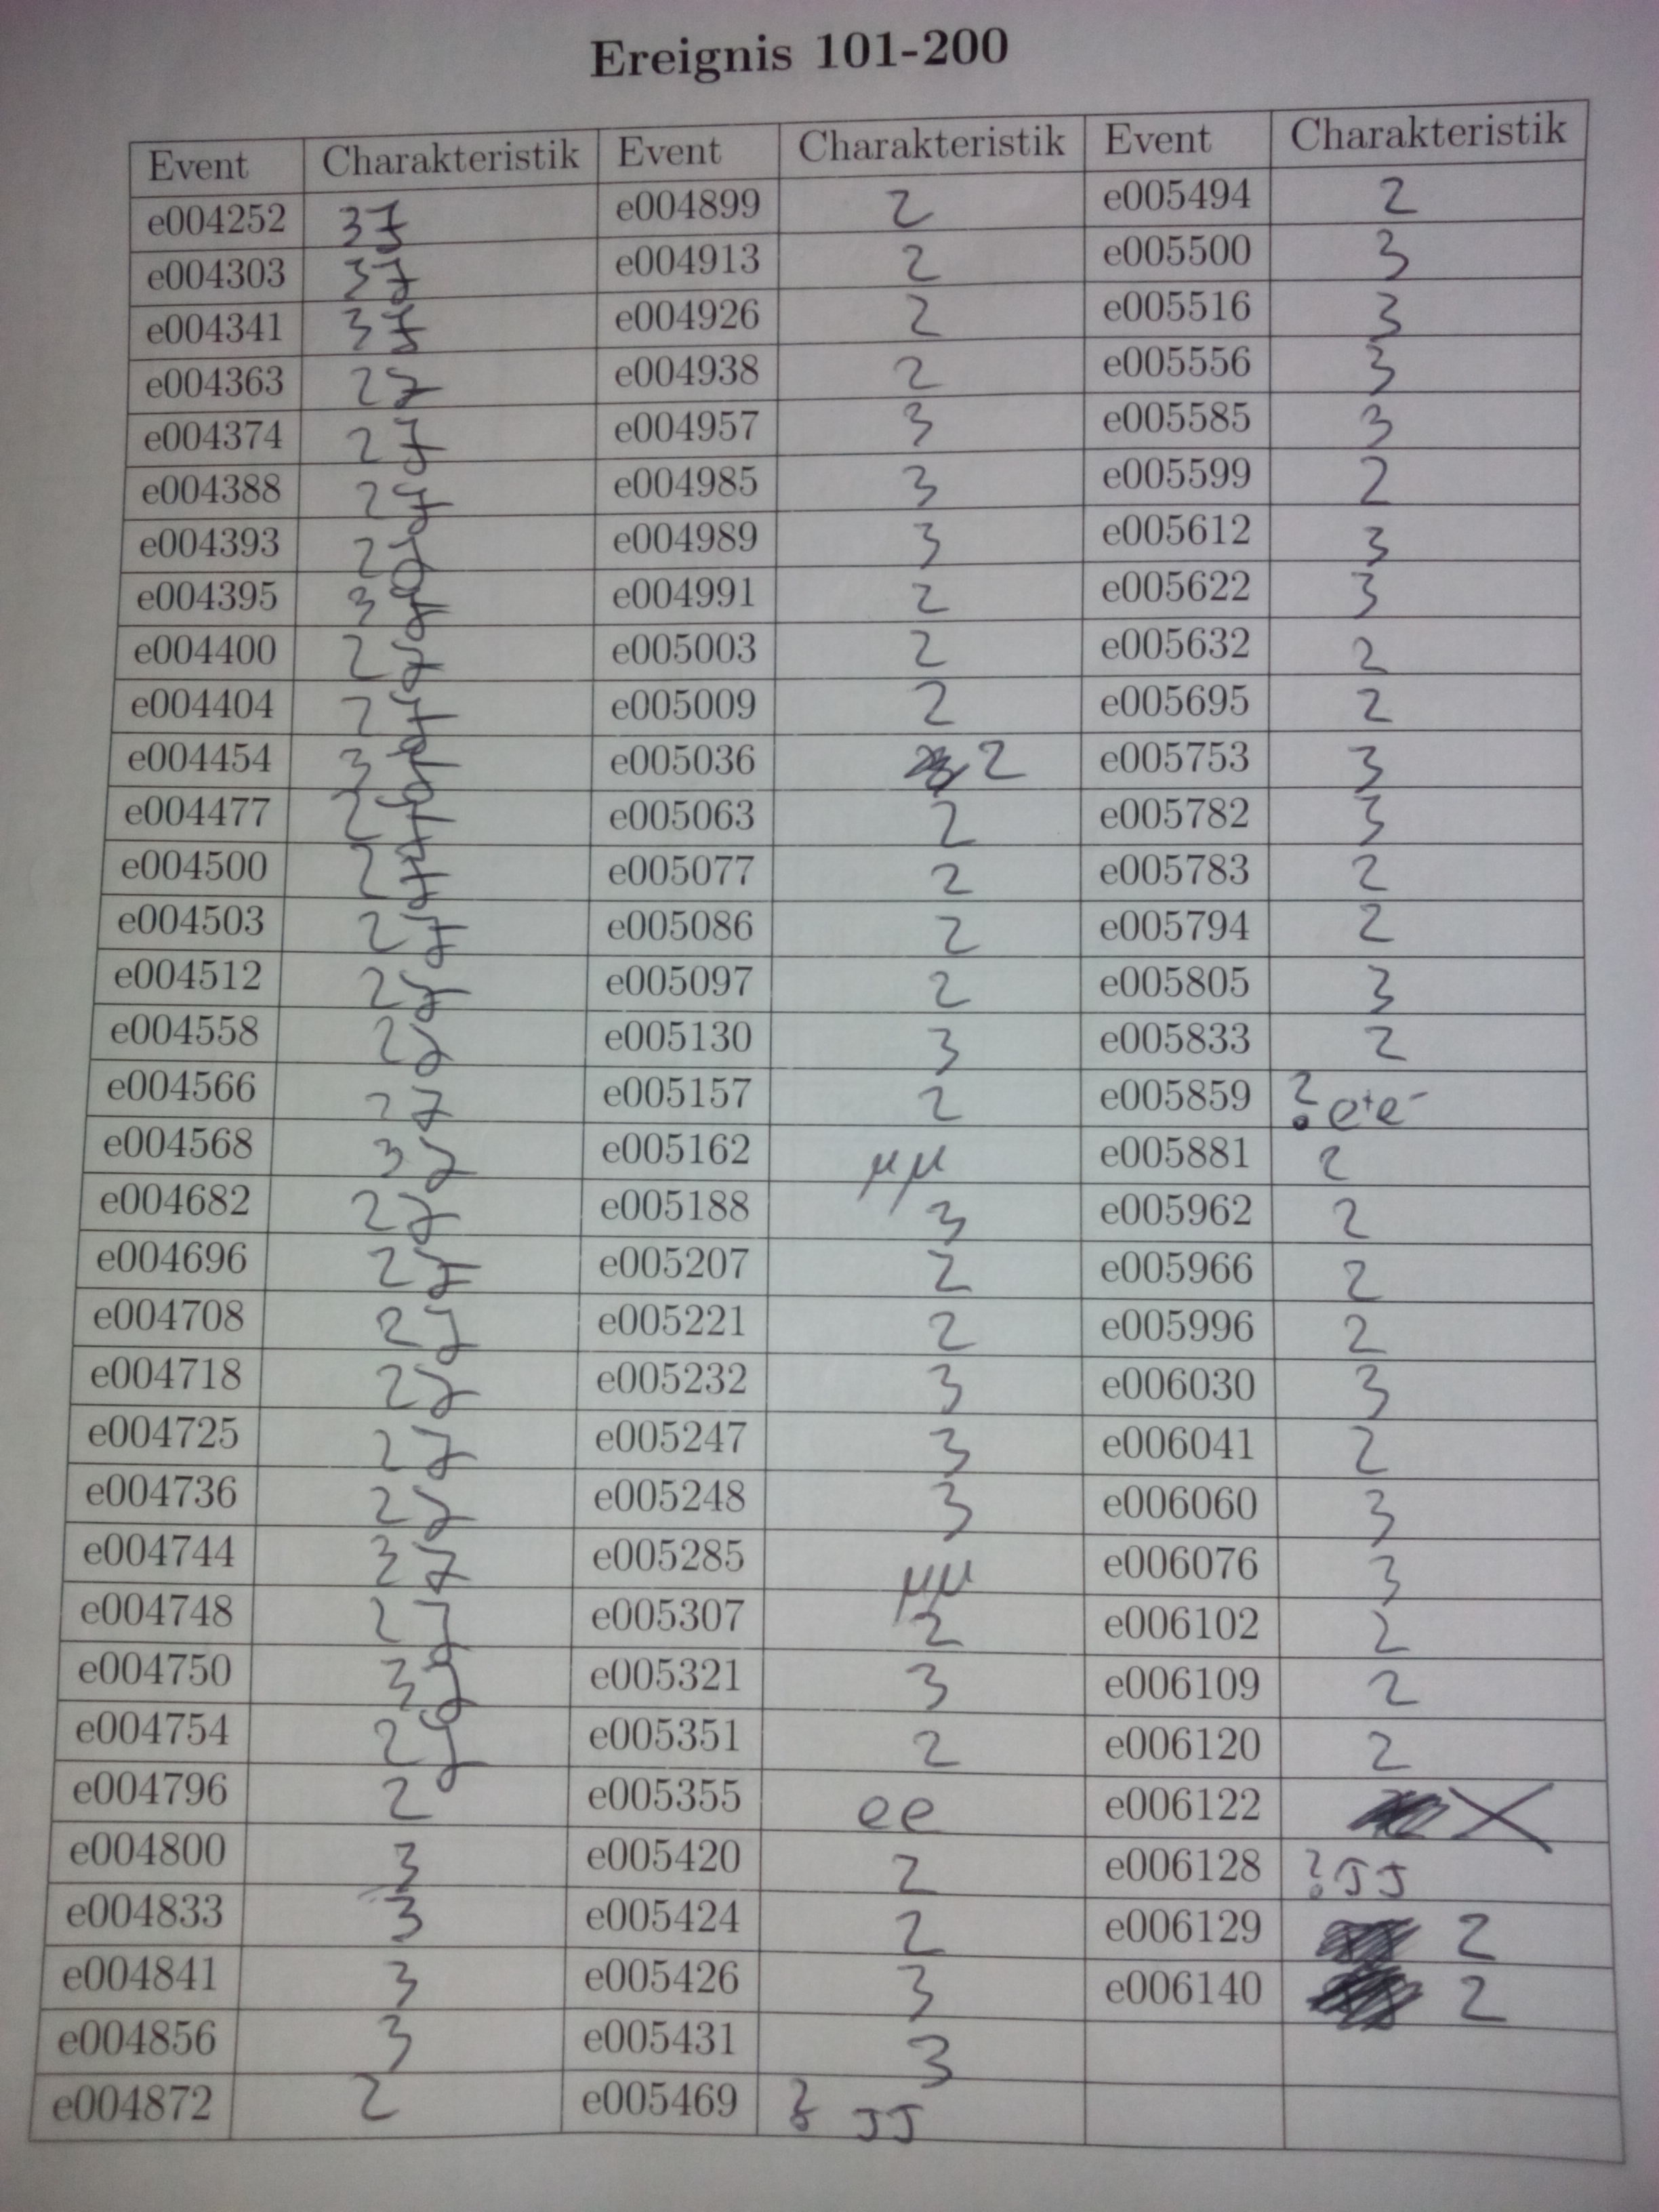 Ereignis 101-200
Event Charakteristik Event Charakteristik Event Charakteristik
e004252 3J e004899 2 e005494 2
e004303 3J e004913 2 e005500 3
e004341 3J e004926 2 e005516 3
e004363 2J e004938 2 e005556 3
e004374 2J e004957 3 e005585 3
e004388 2J e004985 3 e005599 2
e004393 2J e004989 3 e005612 3
e004395 3J e004991 2 e005622 3
e004400 2J e005003 2 e005632 2
e004404 2J e005009 2 e005695 2
e004454 3J e005036 2 e005753 3
e004477 2J e005063 2 e005782 3
e004500 2J e005077 2 e005783 2
e004503 2J e005086 2 e005794 2
e004512 2J e005097 2 e005805 3
e004558 2J e005130 3 e005833 2
e004566 2J e005157 2 e005859 ? e⁺e⁻
e004568 3J e005162 μμ e005881 2
e004682 2J e005188 3 e005962 2
e004696 2J e005207 2 e005966 2
e004708 2J e005221 2 e005996 2
e004718 2J e005232 3 e006030 3
e004725 2J e005247 3 e006041 2
e004736 2J e005248 3 e006060 3
e004744 3J e005285 μμ e006076 3
e004748 2J e005307 2 e006102 2
e004750 3J e005321 3 e006109 2
e004754 2J e005351 2 e006120 2
e004796 2 e005355 ee e006122 X
e004800 3 e005420 2 e006128 ? JJ
e004833 3 e005424 2 e006129 2
e004841 3 e005426 3 e006140 2
e004856 3 e005431 3
e004872 2 e005469 ? JJ